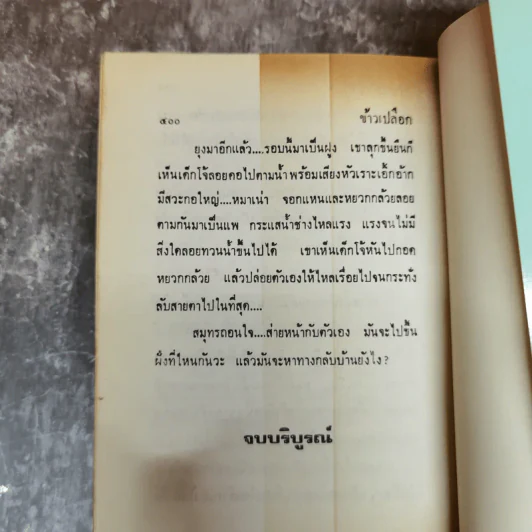 ๔๐๐ ข้าวเปลือก
ยุงมาอีกแล้ว....รอบนี้มาเป็นฝูง เขาลุกขึ้นยืนก็
เห็นเด็กโจ้ลอยคอไปตามน้ำพร้อมเสียงหัวเราะเอิ้กอ้าก
มีสวะกอใหญ่....หมาเน่า จอกแหนและหยวกกล้วยลอย
ตามกันมาเป็นแพ กระแสน้ำช่างไหลแรง แรงจนไม่มี
สิ่งใดลอยทวนน้ำขึ้นไปได้ เขาเห็นเด็กโจ้หันไปกอด
หยวกกล้วย แล้วปล่อยตัวเองให้ไหลเรื่อยไปจนกระทั่ง
ลับสายตาไปในที่สุด....
สมุทรถอนใจ....ส่ายหน้ากับตัวเอง มันจะไปขึ้น
ฝั่งที่ไหนกันวะ แล้วมันจะหาทางกลับบ้านยังไง?
จบบริบูรณ์